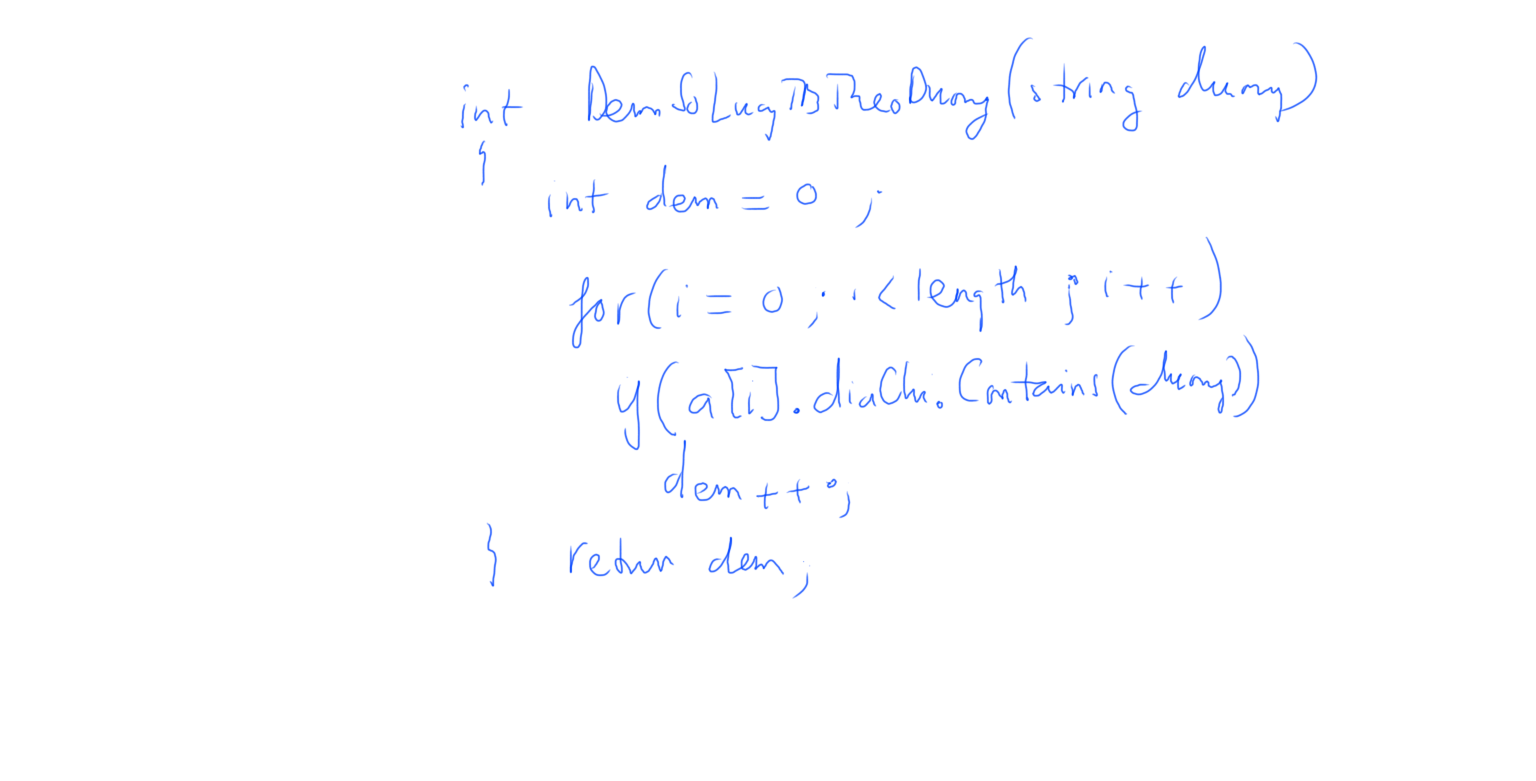 int DemSoLuongTBTheoDuong(string duong)
{
int dem = 0 ;
for(i = 0 ; i < length ; i++)
if(a[i].diaChi.Contains(duong))
dem++;
} return dem;